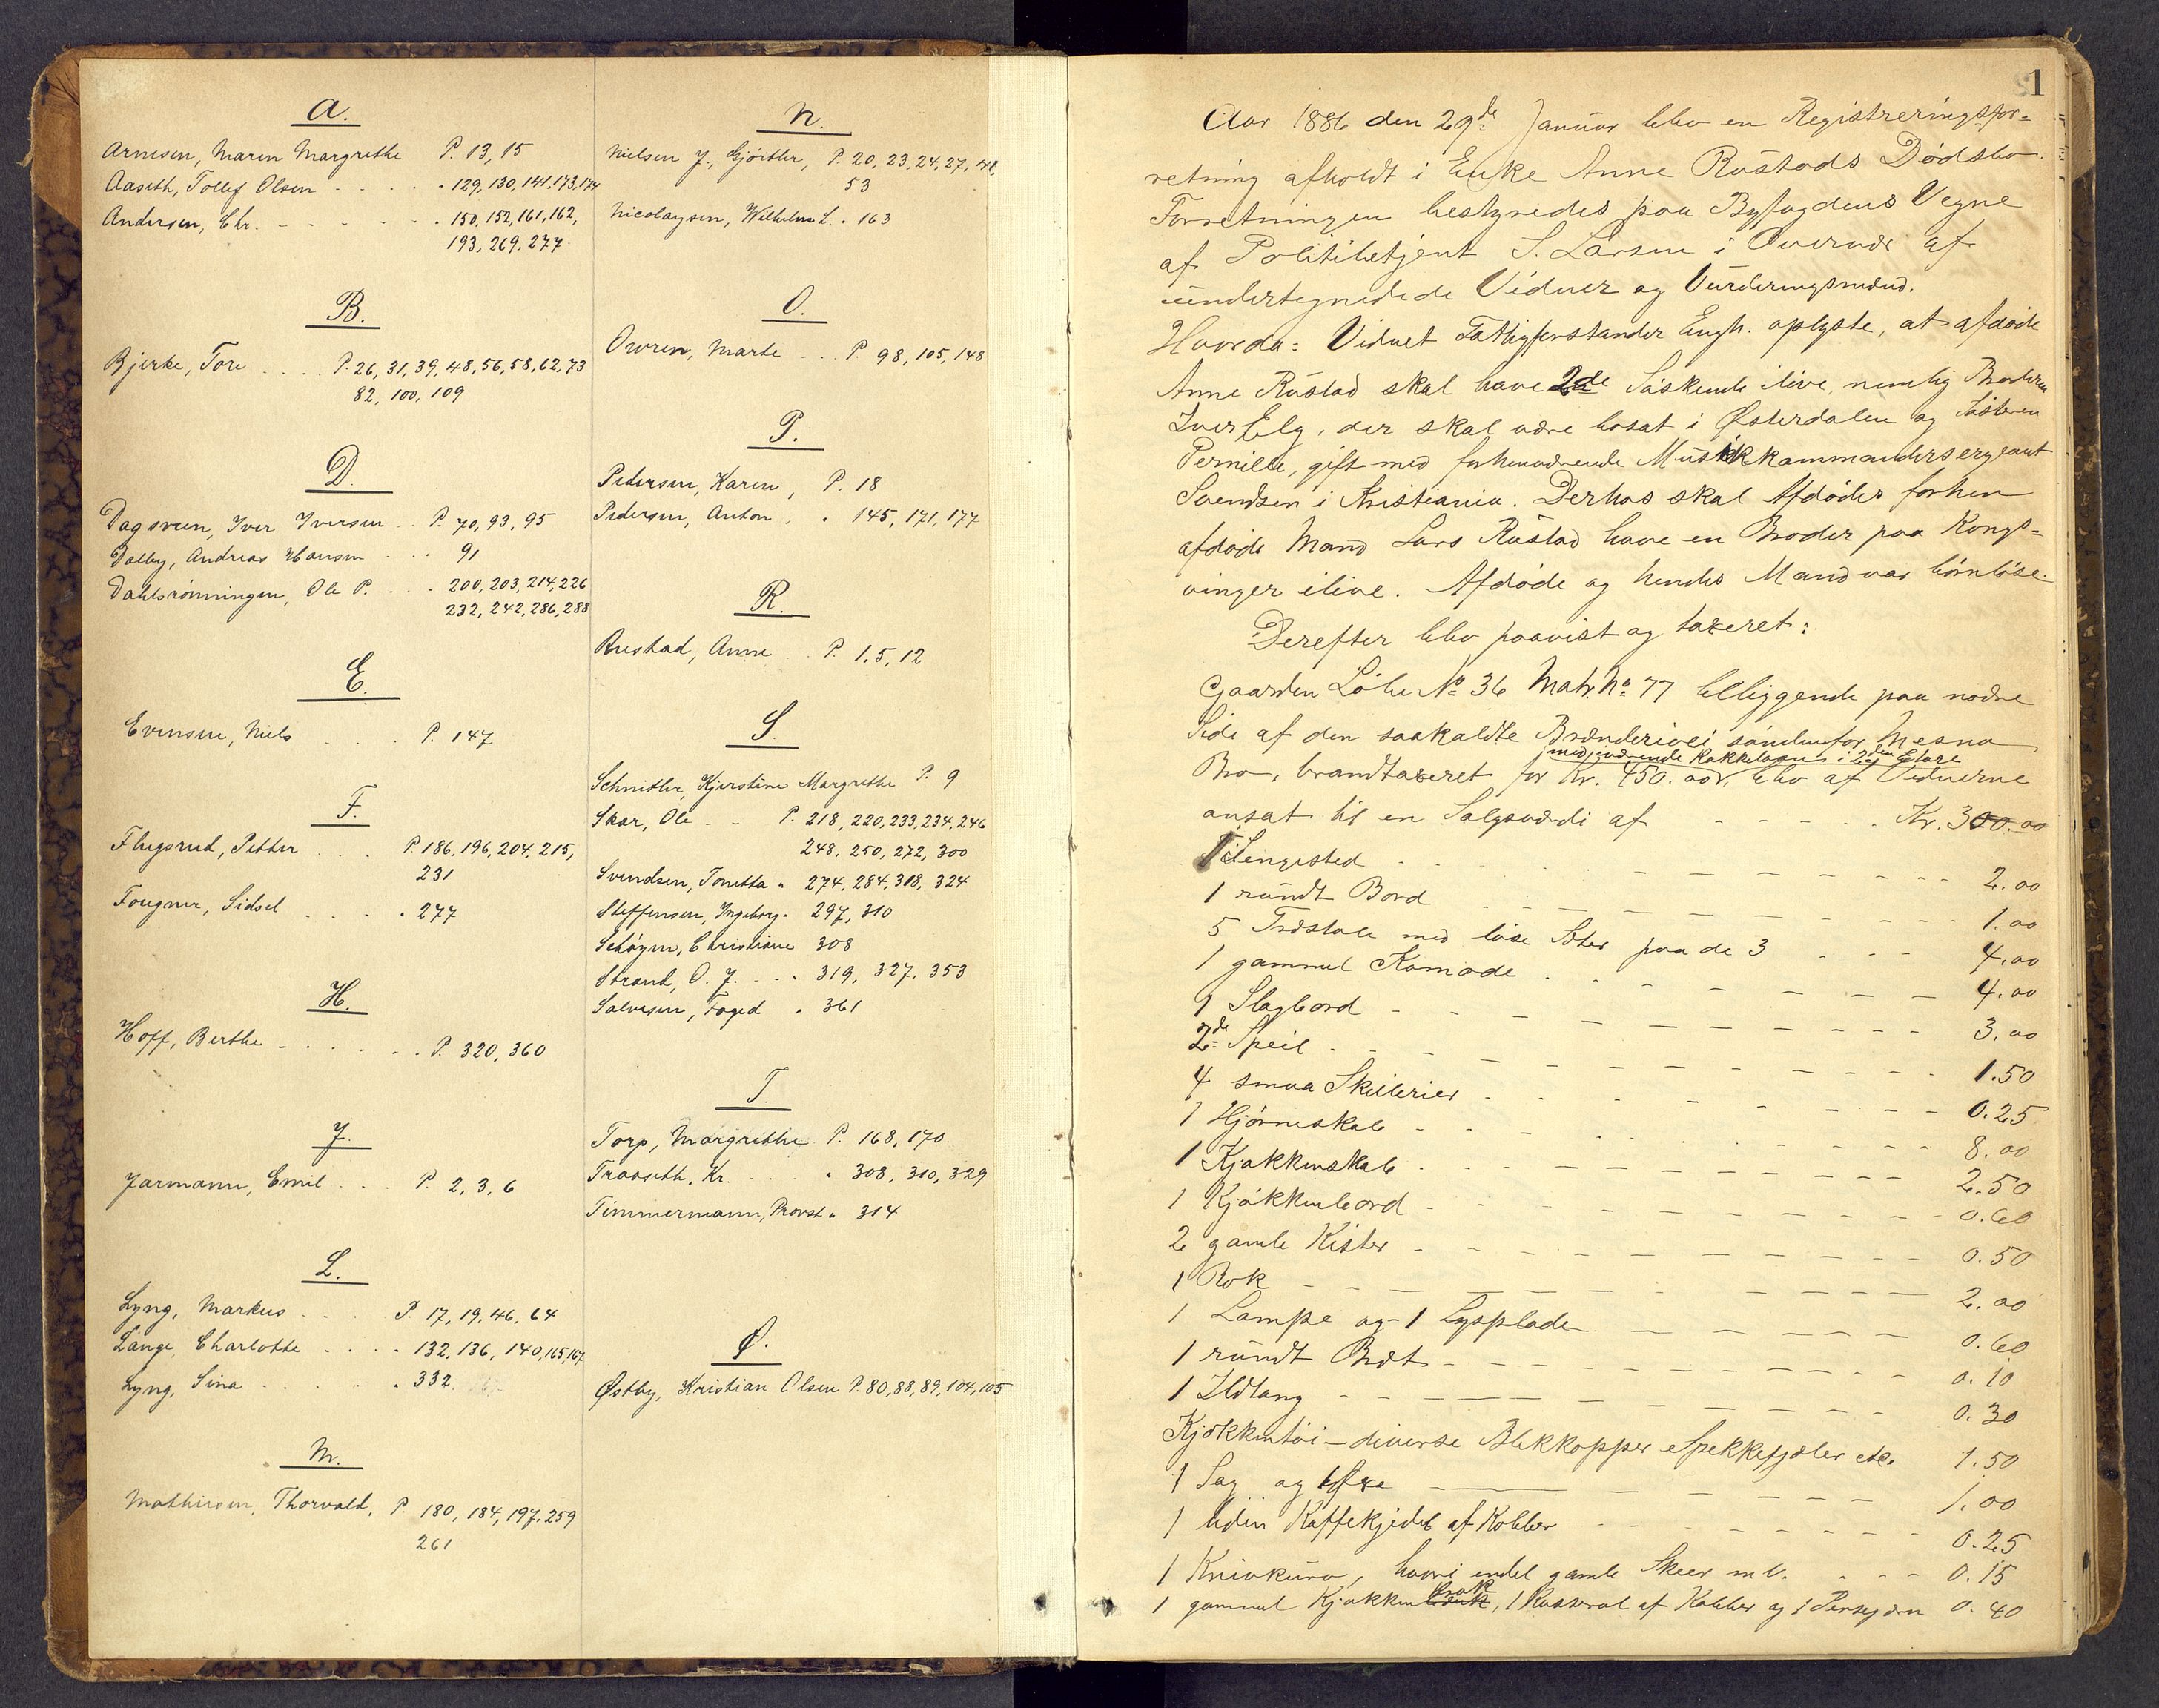 A.
Arnesen, Maren Margrethe P. 13, 15
Aaseth, Tollef Olsen - - - - - 129, 130, 141, 173, 174
Andersen, Chr. - - - - - 150, 152, 161, 162,
193, 269, 277.
B.
Bjerke, Tore . . . . P. 26, 31, 39, 48, 56, 58, 62, 73
82, 100, 109
D.
Dagsveen, Iver Iversen . . P. 70, 93, 95
Dalby, Andreas Hansen . . . 91
Dahlsrønningen, Ole P. . . . 200, 203, 214, 226
232, 242, 286, 288
E.
Evensen, Niels . . . P. 147
F.
Flugsrud, Petter . . . P. 186, 196, 204, 215,
231
Fougner, Sidsel . . . . 277
H.
Hoff, Berthe - . . . . . P. 320, 360
J.
Jarmann, Emil . . . P. 2, 3, 6
L.
Lyng, Markus . . . P. 17, 19, 46, 64
Lange, Charlotte . . . . 132, 136, 140, 165, 167
Lyng, Sina . . . . . 332
M.
Mathiesen, Thorvald, P. 180, 184, 197, 259
261
N.
Nielsen J., Gjörtler, P. 20, 23, 24, 27, 48,
53
Nicolaysen, Wilhelm L. . 163
O.
Owren, Marte . . . P. 98, 105, 148
P.
Pedersen, Karen, P. 18
Pedersen, Anton, . 145, 171, 177
R.
Rustad, Anne . P. 1, 5, 12
S.
Schnitler, Kjerstine Margrethe P. 9
Skar, Ole - - P. 218, 220, 233, 234, 246
248, 250, 272, 300
Svendsen, Tonetta " 274, 284, 318, 324
Steffensen, Ingeborg " 297, 310
Schöyen, Christiane 308
Strand, O. J. - - . 319, 327, 353
Salvesen, Foged . 361
T.
Torp, Margrethe P. 168, 170
Traaseth, Kr. . . . . 308, 310, 329
Timmermann, Provst " 314
Ø.
Østby, Kristian Olsen P. 80, 88, 89, 104, 105
1
Aar 1886 den 29de Januar blev en Registreringsfor=
retning afholdt i Enke Anne Rustads Dødsbo.
Forretningen bestyredes paa Byfogdens Vegne
af Politibetjent S. Larsen i Overvær af
undertegnede de Vidner og Vurderingsmænd.
Hvorda: Vidnet Fattigforstander Engh. oplyste, at afdøde
Anne Rustad skal have 2de Søskende ilive, nemlig Broderen
Iver Elg, der skal være bosat i Østerdalen og Søsteren
Pernille, gift med forhenværende Musikkommandersergeant
Svendsen i Kristiania. Derhos skal Afdødes forhen
afdøde Mand Lars Rustad have en Broder paa Kongs=
vinger ilive. Afdøde og hendes Mand var børnløse.
Derefter blev paavist og taxeret:
Gaarden Löbe No 36 Matr. No 77 beliggende paa nedre
Side af den saakaldte Brænderivei søndenfor Mesna
medværende Kakkelovn i 2den Etage
Bro, brandtaxeret for Kr. 450.00, blev af Vidnerne
ansat til en Salgsværdi af - - - - - Kr. 300.00
1 Sengested - - - - - 2.00
1 rundt Bord - - - - - 1.00
5 Træstole med løse Seter paa de 3 - - - 4.00
1 gammel Komode - - - - - 4.00
1 Slagbord - - - - - 3.00
2de Speil - - - - - 1.50
4 smaa Skilerier - - - - - 0.25
1 Hjørneskab - - - - - 8.00
1 Kjøkkenskab - - - - - 2.50
1 Kjøkkenbord - - - - - 0.60
2 gamle Kister - - - - - 0.50
1 Rok - - - - - 2.00
1 Lampe og 1 Lysplade - - - - - 0.60
1 rundt Bræt - - - - - 0.10
1 Ildtang - - - - - 0.30
Kjøkkentøi - diverse Blikkopper Spekkefjøler etc. 1.50
1 Sag og 1 Øxe - - - - - 1.00
1 liden Kaffekjedel af Kobber - - - - - 0.25
1 Knivkurv, hvori endel gamle Skeer m.v. - - - 0.15
1 gammel Kjøkkenkrak, 1 Kasserol af Kobber og 1 Pressejern 0.40